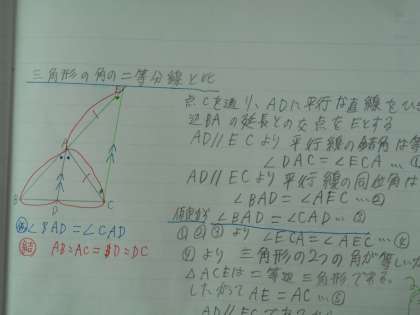 三角形の角の二等分線と比
点Cを通り、ADに平行な直線をひき
辺BAの延長との交点をEとする
AD∥ECより 平行線の錯角は等
∠DAC=∠ECA …①
AD∥ECより平行線の同位角は
∠BAD=∠AEC …②
仮定から ∠BAD=∠CAD …③
①②③より ∠ECA=∠AEC …④
④より 三角形の2つの角が等しいか
△ACEは二等辺三角形である。
したがって AE=AC …⑤
AD∥EC
A
B
D
C
仮 ∠BAD=∠CAD
結 AB:AC=BD:DC